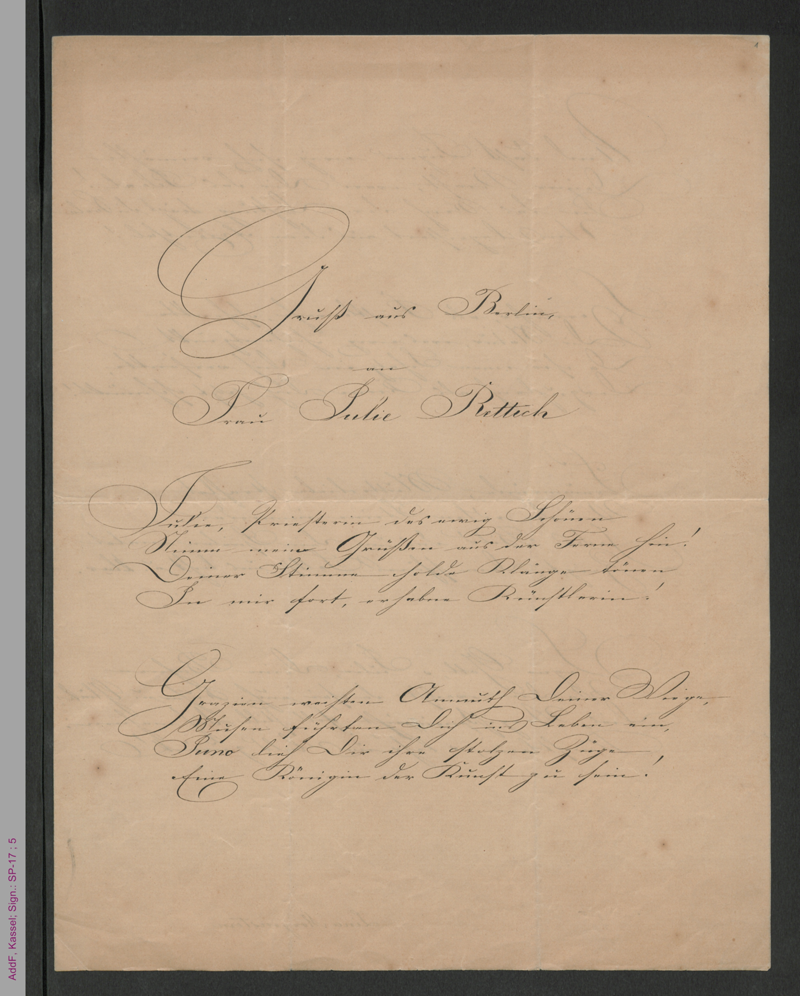 1
Gruß aus Berlin,
an
Frau Julie Rettich
Julie, Priesterin des ewig Schönen
Nimm mein Grüßen aus der Ferne hin!
Deiner Stimme holde Klänge tönen
In mir fort, erhabne Künstlerin!
Grazien weihten Anmuth Deiner Wiege,
Musen führten Dich ins Leben ein,
Juno lieh Dir ihre stolzen Züge
Eine Königin der Kunst zu sein!
AddF, Kassel; Sign.: SP-17 ; 5